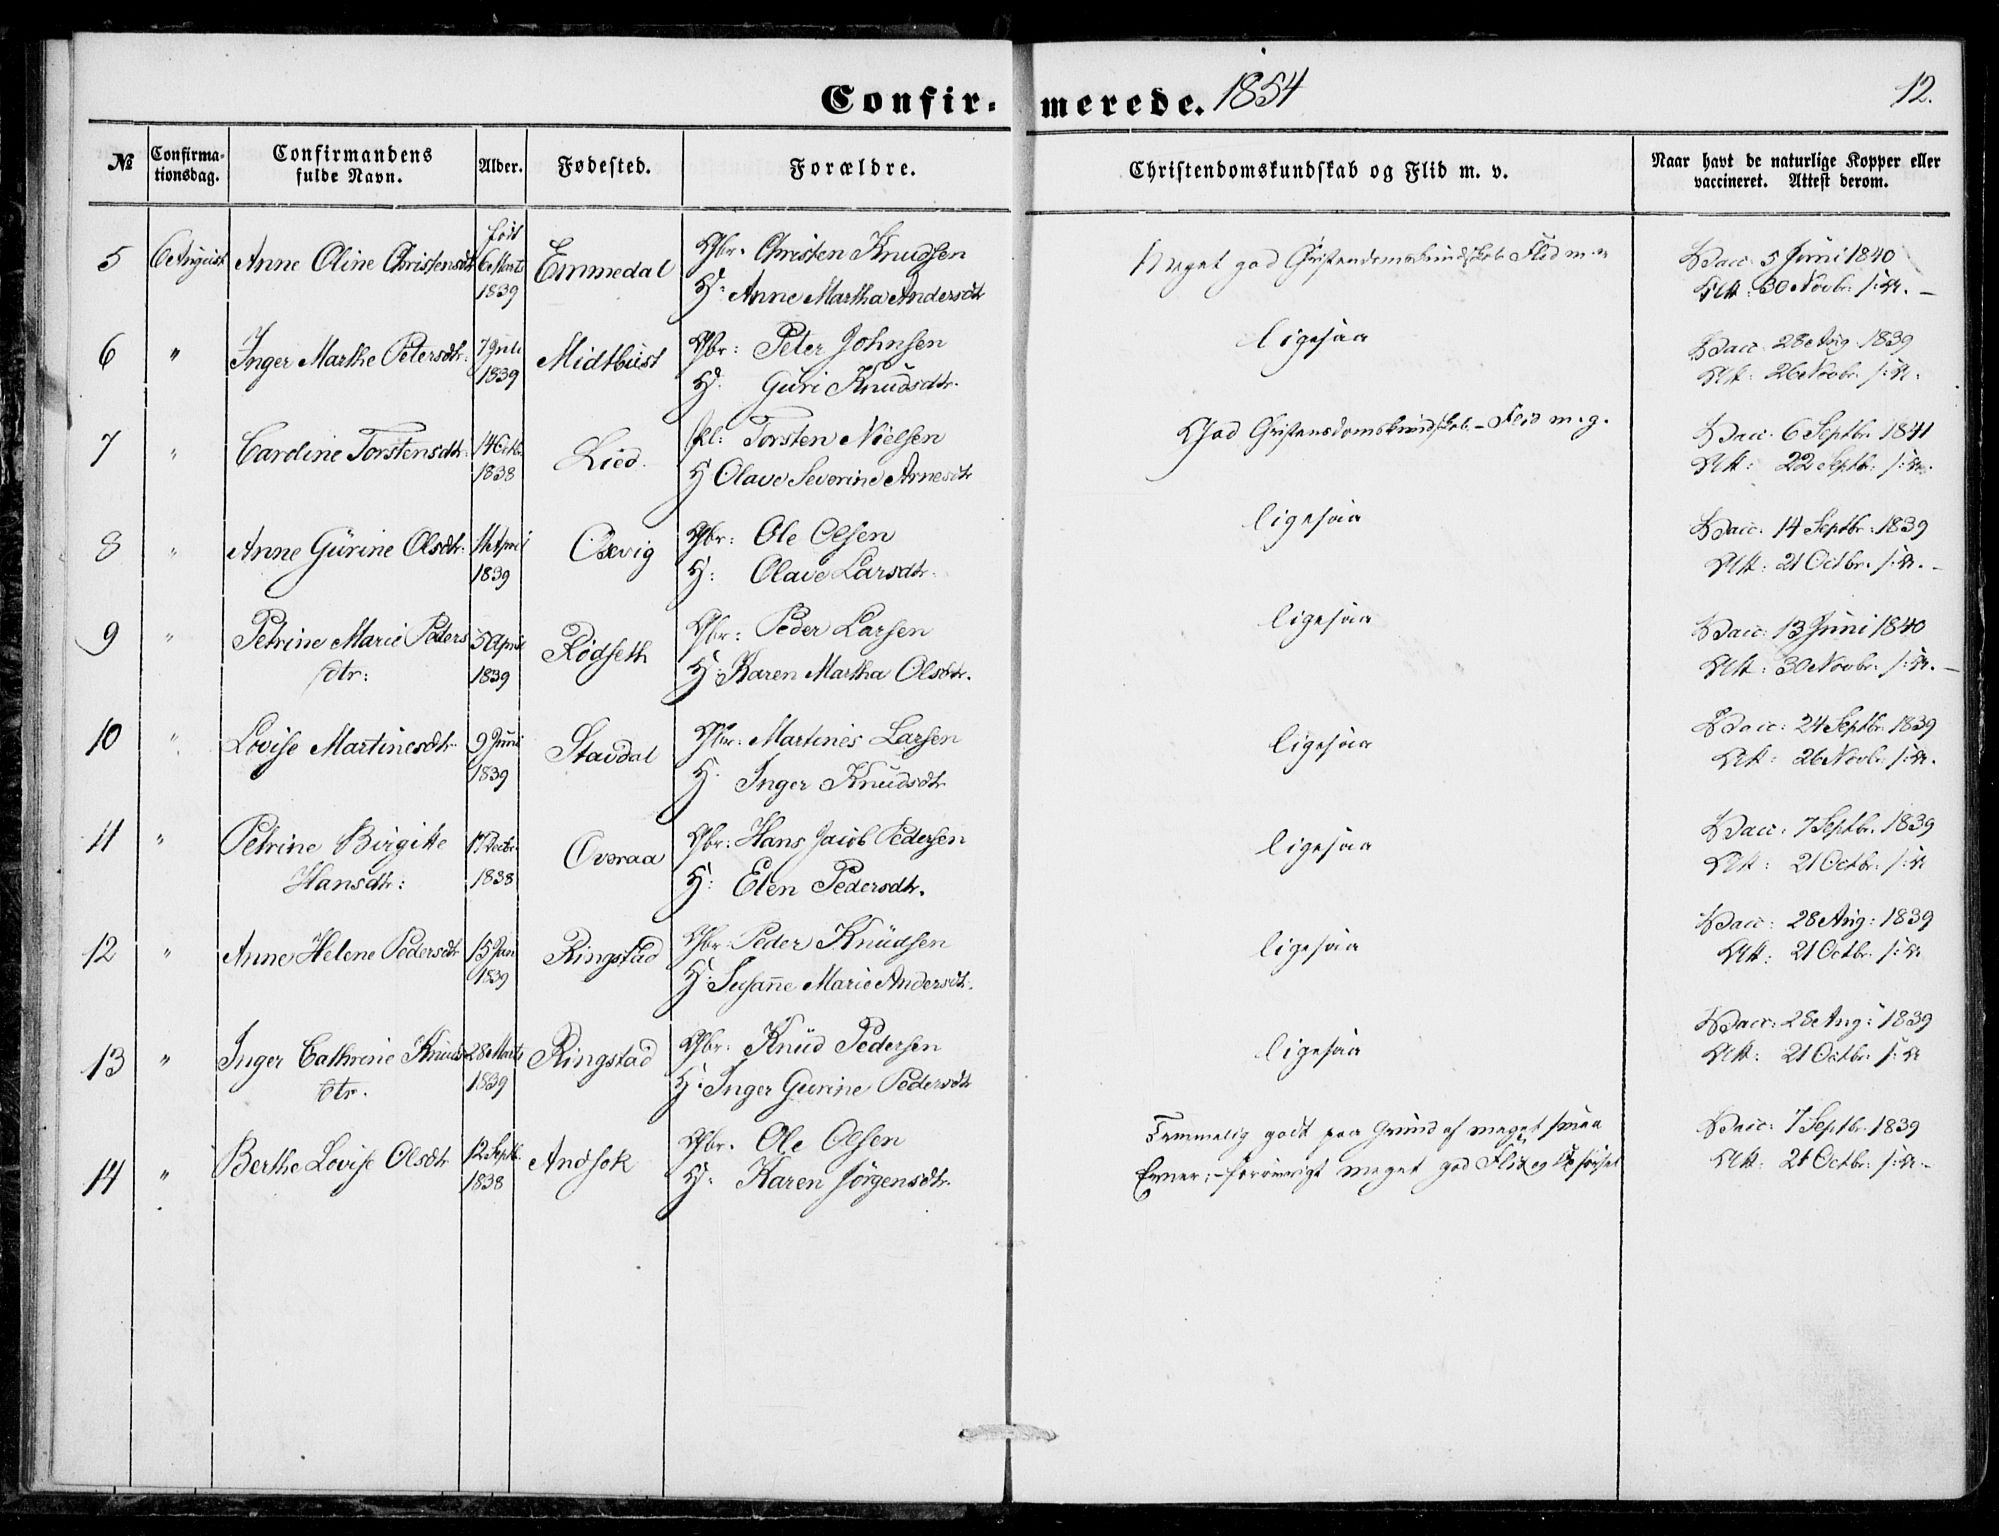 Confir- merede. 1854
12.
№ Confirma-tionsdag. Confirmandens fulde Navn. Alder. Fødested. Forældre. Christendomskundskab og Flid m. v. Naar havt de naturlige Kopper eller vaccineret. Attest derom.
født
5 6 August Anne Oline Christensdtr 6 Marts Emmedal Gbr. Christen Knudsen Meget god Christendomskundskab Flid m. v Vacc. 5 Juni 1840
1839 H. Anne Martha Andersdtr Att: 30 Novbr. s: A. –
6 " Inger Marthe Petersdtr. 7 Juli Midtbust Gbr: Peter Johnsen ligesaa Vacc. 28 Aug. 1839
1839 H. Guri Knudsdtr. Att: 26 Novbr. s: A.
7 " Caroline Torstensdtr. 14 Octbr Lied. Pl: Torsten Nielsen God Christendomskundskab – Flid m. g. Vacc. 6 Septbr. 1841
1838 H Olave Severine Arnesdtr Att: 22 Septbr: s: A.
8 " Anne Gurine Olsdtr. April Oxvig Gbr: Ole Olsen ligesaa Vacc. 14 Septbr. 1839
1839 H: Olave Larsdtr. Att: 21 Octbr. s: A. –
9 " Petrine Marie Peders 5 April Rødseth Gbr: Peder Larsen ligesaa Vacc: 13 Juni 1840
dtr: 1839 H. Karen Martha Olsdtr. Att: 30 Novbr. s: A. –
10 " Lovise Martinesdtr 9 Juni Stavdal Gbr: Martines Larsen ligesaa Vacc: 24 Septbr. 1839
1839 H. Inger Knudsdtr Att: 26 Novbr. s: A.
11 " Petrine Birgitte 17 Decbr. Overaa Gbr: Hans Jacob Pedersen ligesaa Vacc: 7 Septbr. 1839
Hansdtr: 1838 H: Elen Pedersdtr. Att: 21 Octbr. s: A
12 " Anne Helene Pedersdtr 15 Jan Ringstad Gbr: Peder Knudsen ligesaa Vacc: 28 Aug: 1839
1839 H: Susanne Marie Andersdtr. Att: 21 Octbr. s: A
13 " Inger Cathrine Knuds 28 Marts Ringstad Gbr. Knud Pedersen ligesaa Vacc: 28 Aug: 1839
dtr. 1839 H: Inger Gurine Pedersdtr Att: 21 Octbr. s: A
14 " Berthe Lovise Olsdtr 12 Septb. Andsok Gbr. Ole Olsen Temmelig godt paa Grund af meget smaa Vacc: 7 Septbr. 1839
1838 H. Karen Jörgensdtr. Evner; – forøvrigt meget god Flid og Opførsel Att: 21 Octbr: s: A. –